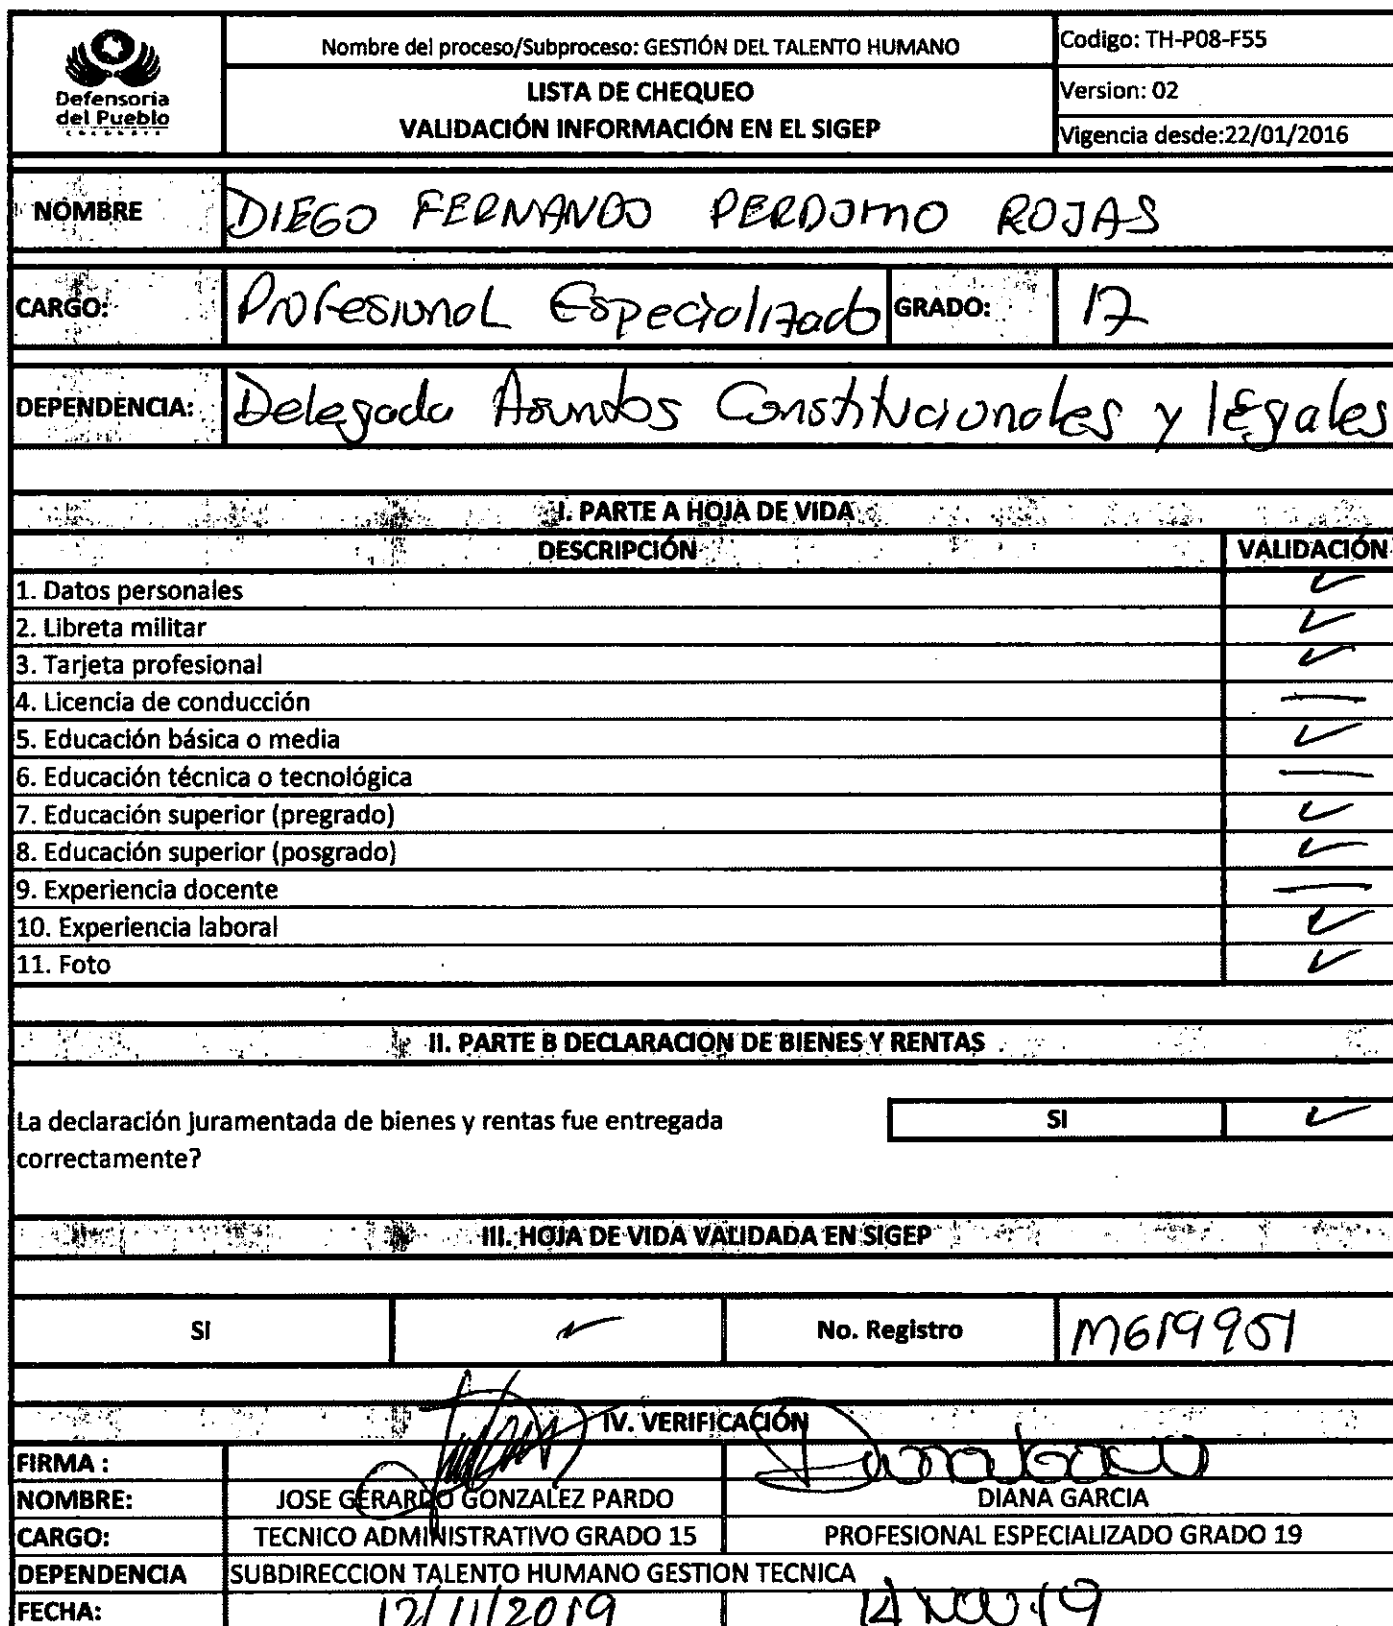 Defensoría
del Pueblo
COLOMBIA
Nombre del proceso/Subproceso: GESTIÓN DEL TALENTO HUMANO
Codigo: TH-P08-F55
LISTA DE CHEQUEO
VALIDACIÓN INFORMACIÓN EN EL SIGEP
Version: 02
Vigencia desde:22/01/2016
NOMBRE DIEGO FERNANDO PERDOMO ROJAS
CARGO: Profesional Especializado GRADO: 17
DEPENDENCIA: Delegada Asuntos Constitucionales y légales
I. PARTE A HOJA DE VIDA
DESCRIPCIÓN VALIDACIÓN
1. Datos personales ✓
2. Libreta militar ✓
3. Tarjeta profesional ✓
4. Licencia de conducción —
5. Educación básica o media ✓
6. Educación técnica o tecnológica —
7. Educación superior (pregrado) ✓
8. Educación superior (posgrado) ✓
9. Experiencia docente —
10. Experiencia laboral ✓
11. Foto ✓
II. PARTE B DECLARACION DE BIENES Y RENTAS
La declaración juramentada de bienes y rentas fue entregada
correctamente?
SI ✓
III. HOJA DE VIDA VALIDADA EN SIGEP
SI ✓ No. Registro M619951
IV. VERIFICACIÓN
FIRMA :
NOMBRE: JOSE GERARDO GONZALEZ PARDO DIANA GARCIA
CARGO: TECNICO ADMINISTRATIVO GRADO 15 PROFESIONAL ESPECIALIZADO GRADO 19
DEPENDENCIA SUBDIRECCION TALENTO HUMANO GESTION TECNICA
FECHA: 12/11/2019 14 NOV. 19